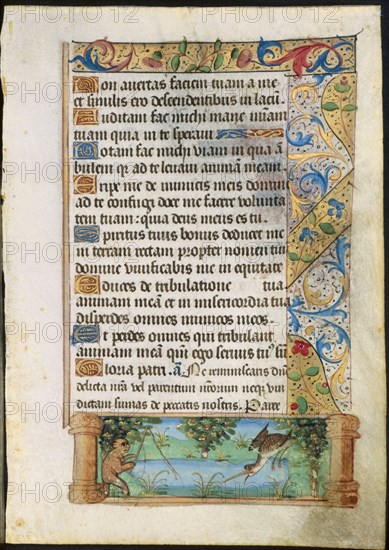 Non avertas faciem tuam a me
et similis ero descendentibus in lacū
Auditam fac michi mane miam
tuam quia in te speravi
Notam fac michi viam in qua ā
bulem qr ad te levavi animam meam
Eripe me de inimicis meis domine
ad te confugi doce me facere volunta
tem tuam : quia deus meus es tu
Spiritus tuus bonus deducet me
in terram rectam propter nomen tuū
domine vivificabis me in equitate
Educes de tribulatione tua
animam meā et in misericordia tua
disperdes omnes inimicos meos
Et perdes omnes qui tribulant
animam meā qm ego servus tuꝰ sū
Gloria patri . ā Ne reminiscaris dn̄e
delicta nr̄a vel parentum nr̄orum neqꝫ vin
dictam sumas de peccatis nostris . Parce